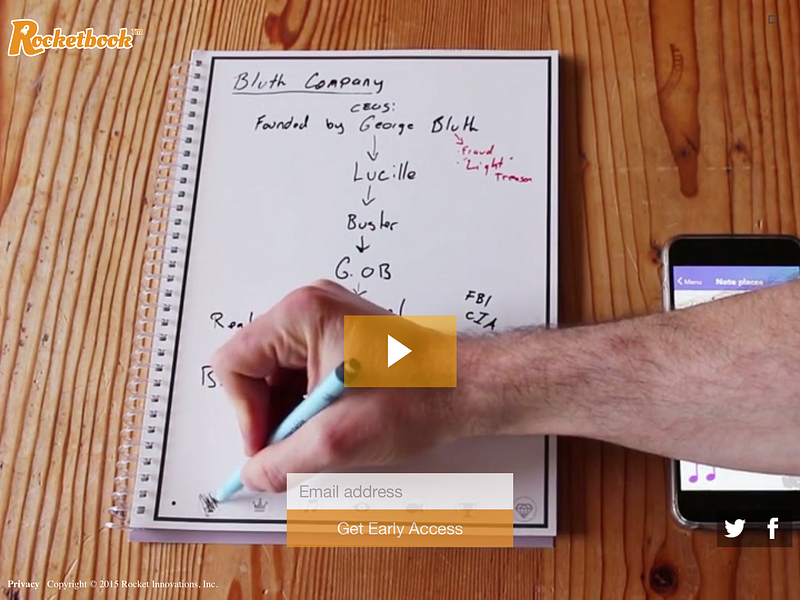 Rocketbook™
Bluth Company
CEOs:
Founded by George Bluth
Fraud
"Light"
Treason
Lucille
Buster
G.OB
FBI
CIA
Real
B.
Menu
Note places
Email address
Get Early Access
Privacy Copyright © 2015 Rocket Innovations, Inc.